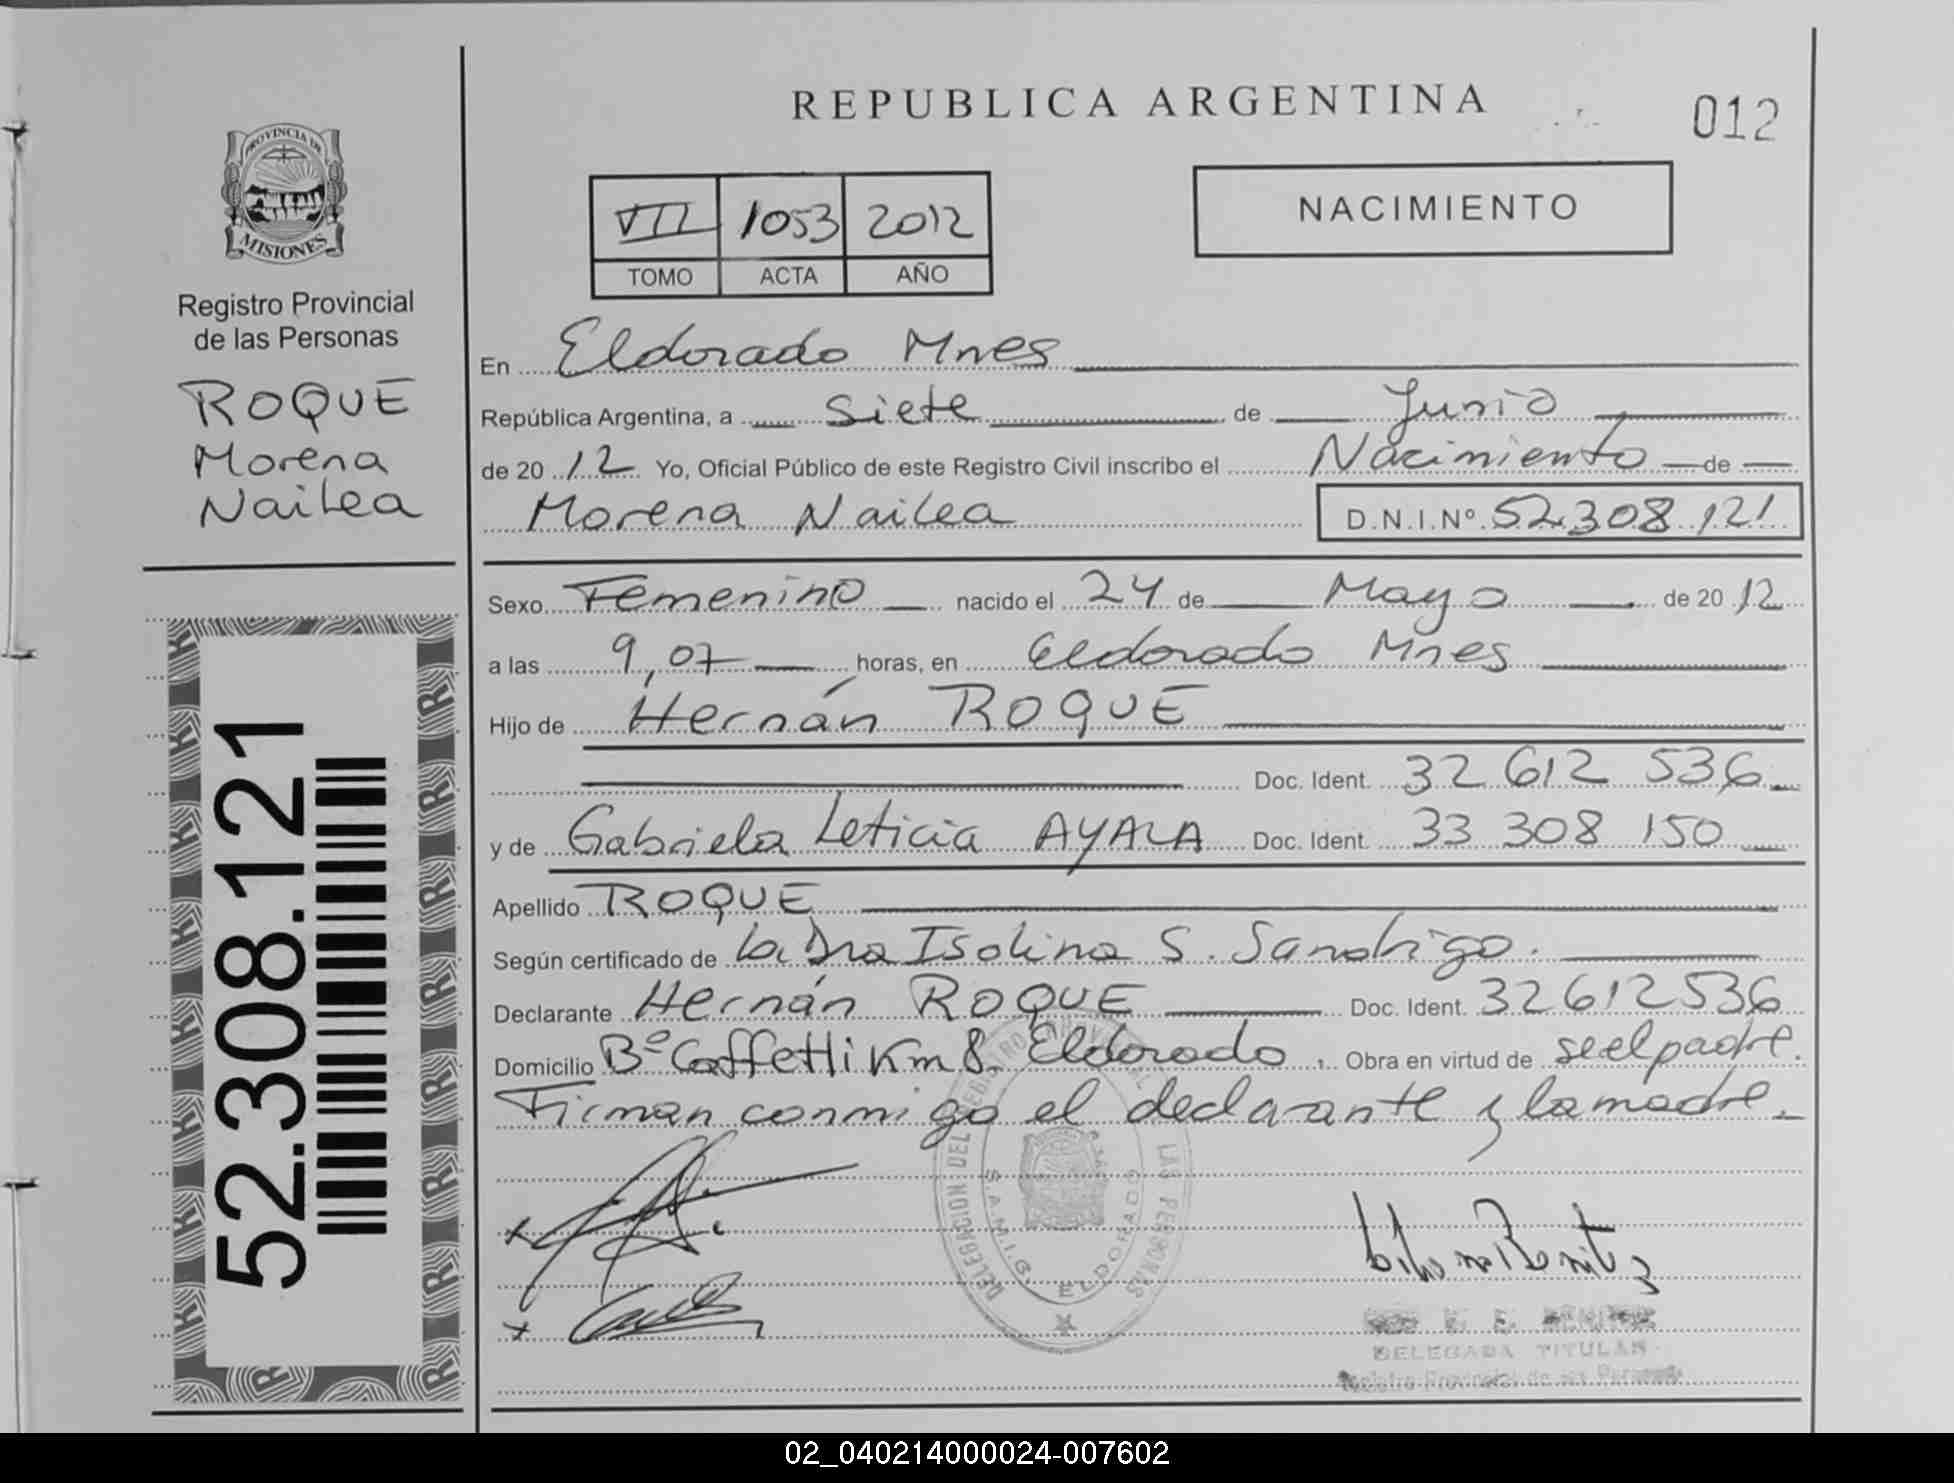 REPUBLICA ARGENTINA
012
PROVINCIA DE
MISIONES
Registro Provincial
de las Personas
ROQUE
Morena
Nailea
52.308.121
VII 1053 2012
TOMO ACTA AÑO
NACIMIENTO
En Eldorado Mnes
República Argentina, a siete de Junio
de 2012 Yo, Oficial Público de este Registro Civil inscribo el Nacimiento de
Morena Nailea D.N.I.Nº 52.308.121
Sexo Femenino nacido el 24 de Mayo de 2012
a las 9,07 horas, en Eldorado Mnes
Hijo de Hernán ROQUE
Doc. Ident. 32 612 536
y de Gabriela Leticia AYALA Doc. Ident. 33 308 150
Apellido ROQUE
Según certificado de la Dra Isolina S.
Declarante Hernán ROQUE Doc. Ident. 32 612 536
Domicilio Bº Caffetti Km 8. Eldorado. Obra en virtud de se el padre.
Firman conmigo el declarante y la madre.
DELEGACION DEL REGISTRO PROVINCIAL DE LAS PERSONAS
ELDORADO
DELEGADA TITULAR
Registro Provincial de las Personas
02_040214000024-007602